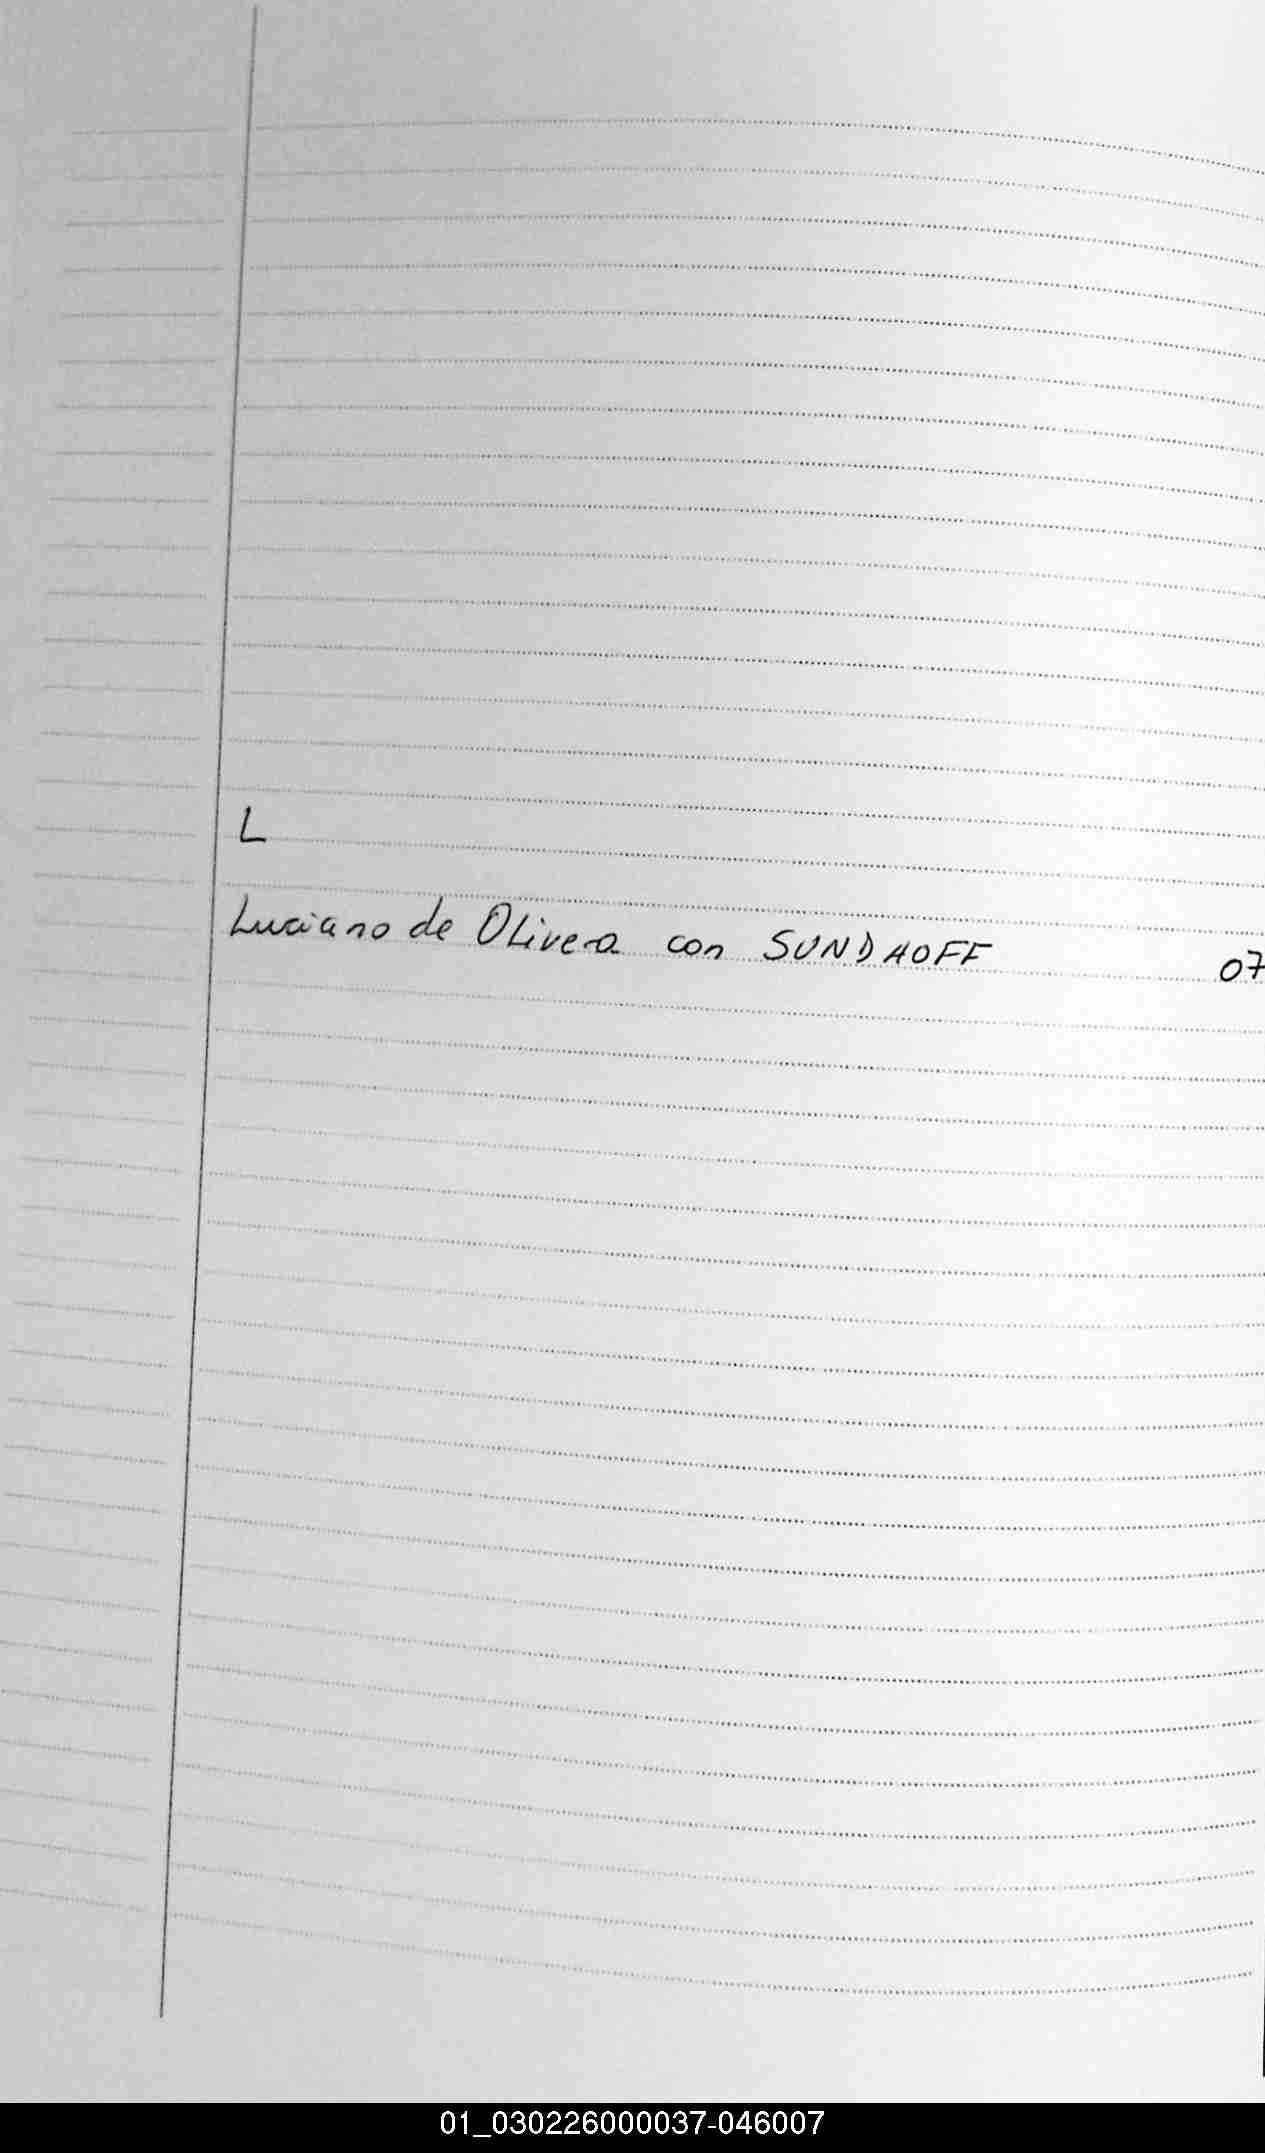 L
Luciano de Olivera con SUNDHOFF 07
01_030226000037-046007